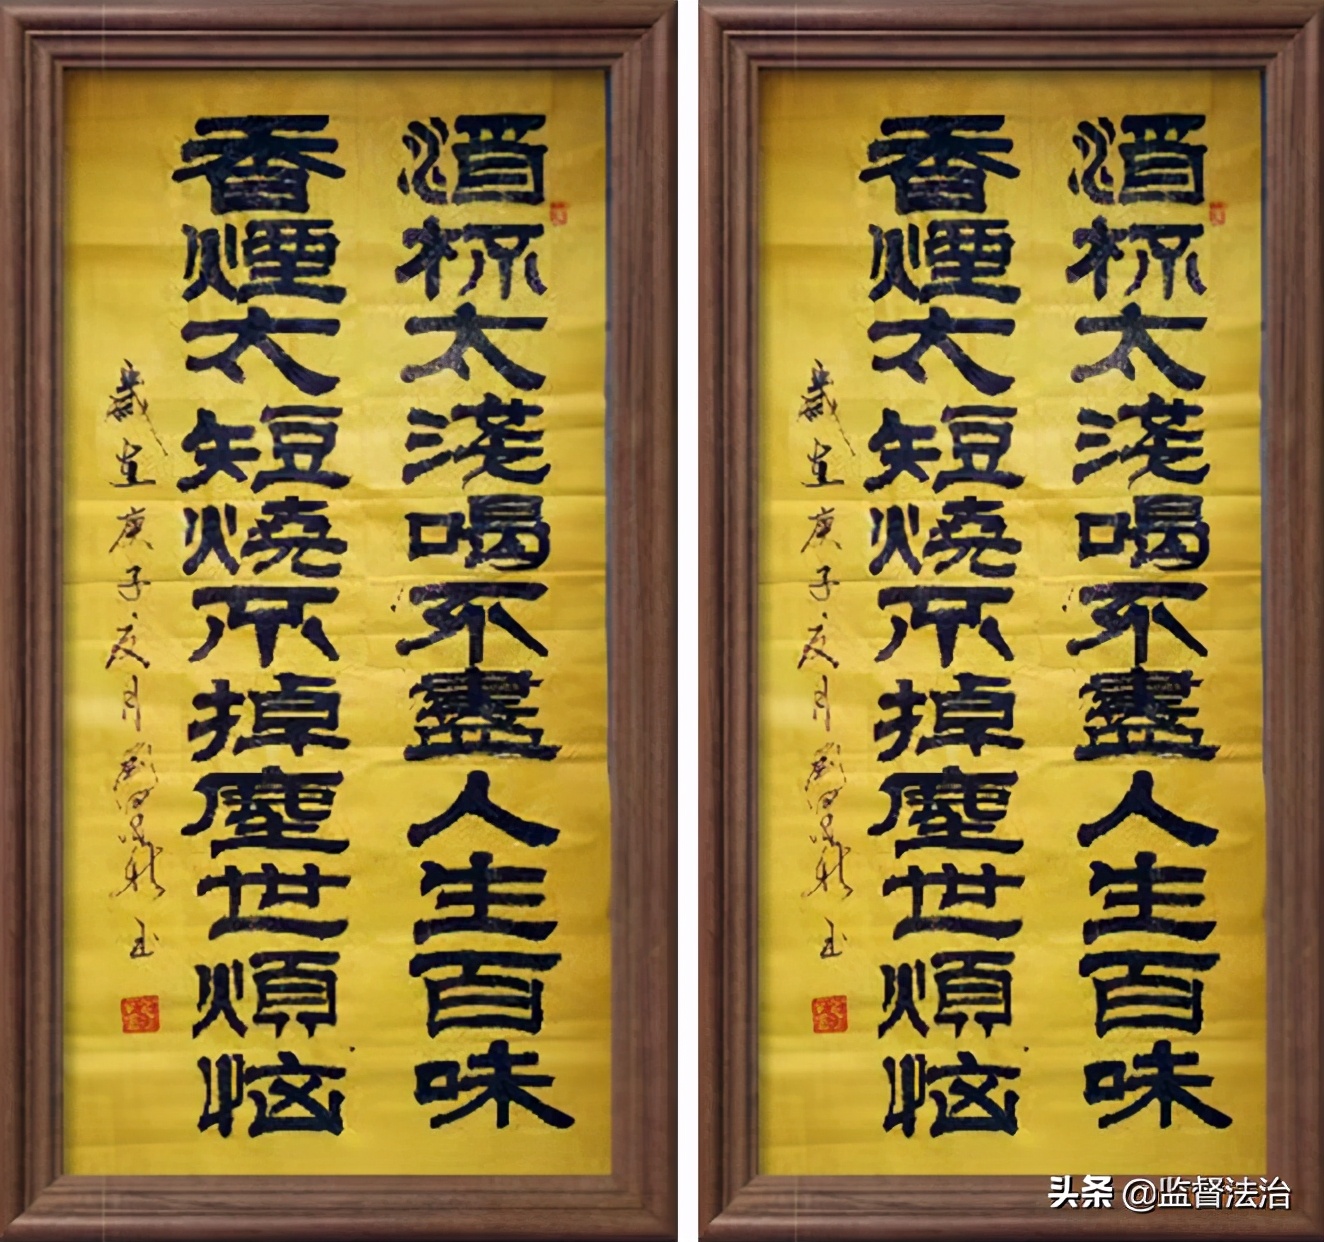 酒杯太淺喝不盡人生百味
香煙太短燒不掉塵世煩惱
歲在庚子夏月劉
酒杯太淺喝不盡人生百味
香煙太短燒不掉塵世煩惱
歲在庚子夏月劉
头条 @监督法治